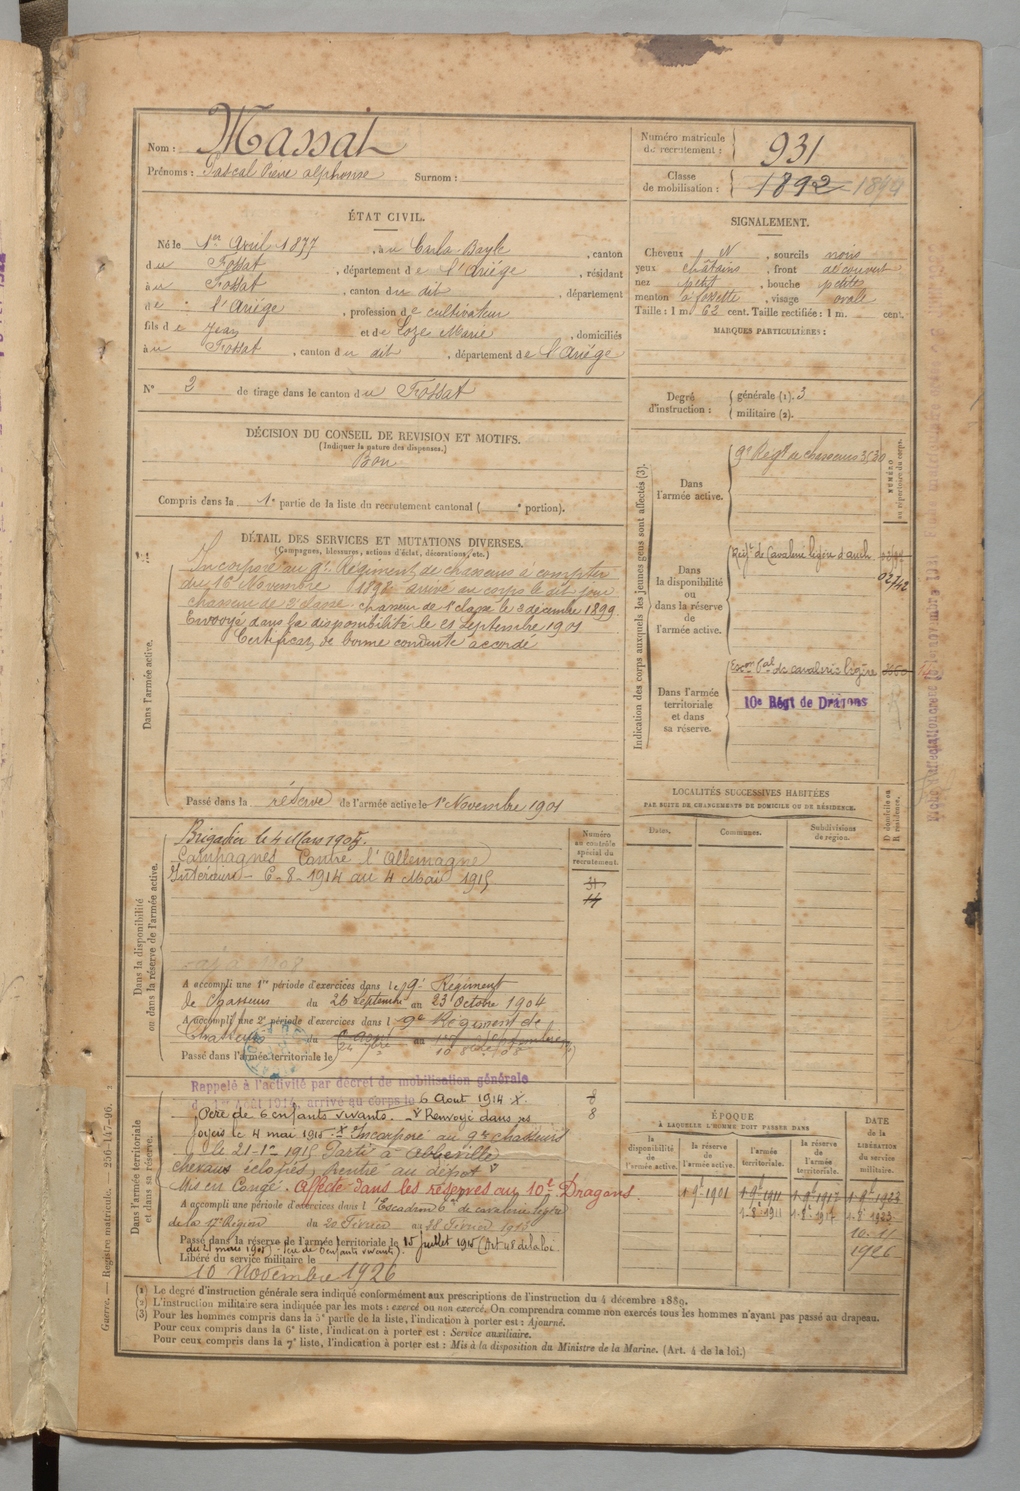 Nom : Massat
Prénoms : Pascal Pierre alphonse Surnom :
Numéro matricule de recrutement : 931
Classe de mobilisation : 1892 1894
ÉTAT CIVIL.
Né le 1er Avril 1877, à u Carla-Bayle, canton
du Fossat, département de l'Ariége, résidant
à u Fossat, canton du dit, département
de l'Ariége, profession de cultivateur
fils de Jean et de Loze Marie, domiciliés
à u Fossat, canton du dit, département de l'Ariége
N° 2 de tirage dans le canton du Fossat
SIGNALEMENT.
Cheveux N, sourcils noirs
yeux châtains, front découvert
nez petit, bouche petite
menton à fossette, visage ovale
Taille : 1 m. 62 cent. Taille rectifiée : 1 m. cent.
MARQUES PARTICULIÈRES :
Degré d'instruction : générale (1). 3
militaire (2).
DÉCISION DU CONSEIL DE REVISION ET MOTIFS.
(Indiquer la nature des dispenses.)
Bon
Compris dans la 1e partie de la liste du recrutement cantonal ( e portion).
DÉTAIL DES SERVICES ET MUTATIONS DIVERSES.
(Campagnes, blessures, actions d'éclat, décorations, etc.)
Dans l'armée active.
Incorporé au 9e Régiment de chasseurs à compter
du 16 Novembre 1898 arrivé au corps le dit jour
chasseur de 2e classe. chasseur de 1e classe le 3 décembre 1899.
Envoyé dans la disponibilité le 21 Septembre 1901
Certificat de bonne conduite accordé
Passé dans la réserve de l'armée active le 1e Novembre 1901
Indication des corps auxquels les jeunes gens sont affectés (3).
NUMÉRO au répertoire du corps.
Dans l'armée active.
9e Régt de chasseurs 3530
Dans la disponibilité ou dans la réserve de l'armée active.
Régt de Cavalerie légère d'auch
02/42
Dans l'armée territoriale et dans sa réserve.
Escon tal de cavalerie légère
10e Régt de Dragons
LOCALITÉS SUCCESSIVES HABITÉES
PAR SUITE DE CHANGEMENTS DE DOMICILE OU DE RÉSIDENCE.
Dates. Communes. Subdivisions de région. D domicile ou R résidence.
Dans la disponibilité ou dans la réserve de l'armée active.
Numéro au contrôle spécial du recrutement.
Brigadier le 4 Mars 1904.
Campagnes Contre l'Allemagne
Intérieur – 6-8-1914 au 4 Mai 1915
31
14
A accompli une 1re période d'exercices dans le 9e Régiment
de Chasseurs du 26 Septembre au 23 Octobre 1904
A accompli une 2e période d'exercices dans l 9e Régiment de
Chasseurs du au
Passé dans l'armée territoriale le
Dans l'armée territoriale et dans sa réserve.
Rappelé à l'activité par décret de mobilisation générale
du 1er Août 1914, arrivé au corps le 6 Aout 1914 X.
Père de 6 enfants vivants. Renvoyé dans ses
foyers le 4 mai 1915 X Incorporé au 9e chasseurs
le 21-1-1915 Parti à Abbeville
chevaux éclopés, rentré au dépôt
Mis en Congé. Affecté dans les réserves au 10e Dragons.
A accompli une période d'exercices dans l'Escadron tal de cavalerie légère
de la 17e Région du 20 Février au 28 Février 1913
Passé dans la réserve de l'armée territoriale le 15 juillet 1915 (Art 48 de la loi
du 21 mars 1905) Père de 6 enfants vivants).
Libéré du service militaire le
10 novembre 1926
8
ÉPOQUE
À LAQUELLE L'HOMME DOIT PASSER DANS
la disponibilité de l'armée active. la réserve de l'armée active. l'armée territoriale. la réserve de l'armée territoriale.
DATE de la LIBÉRATION du service militaire.
1 9e 1901 1 9e 1911 1 9e 1917 1 9e 1923
1-8e 1911 1-8e 1917 1-8e 1923
10-11
1926
(1) Le degré d'instruction générale sera indiqué conformément aux prescriptions de l'instruction du 4 décembre 1889.
(2) L'instruction militaire sera indiquée par les mots : exercé ou non exercé. On comprendra comme non exercés tous les hommes n'ayant pas passé au drapeau.
(3) Pour les hommes compris dans la 5e partie de la liste, l'indication à porter est : Ajourné.
Pour ceux compris dans la 6e liste, l'indication à porter est : Service auxiliaire.
Pour ceux compris dans la 7e liste, l'indication à porter est : Mis à la disposition du Ministre de la Marine. (Art. 4 de la loi.)
Guerre. — Registre matricule. 256-147-96.